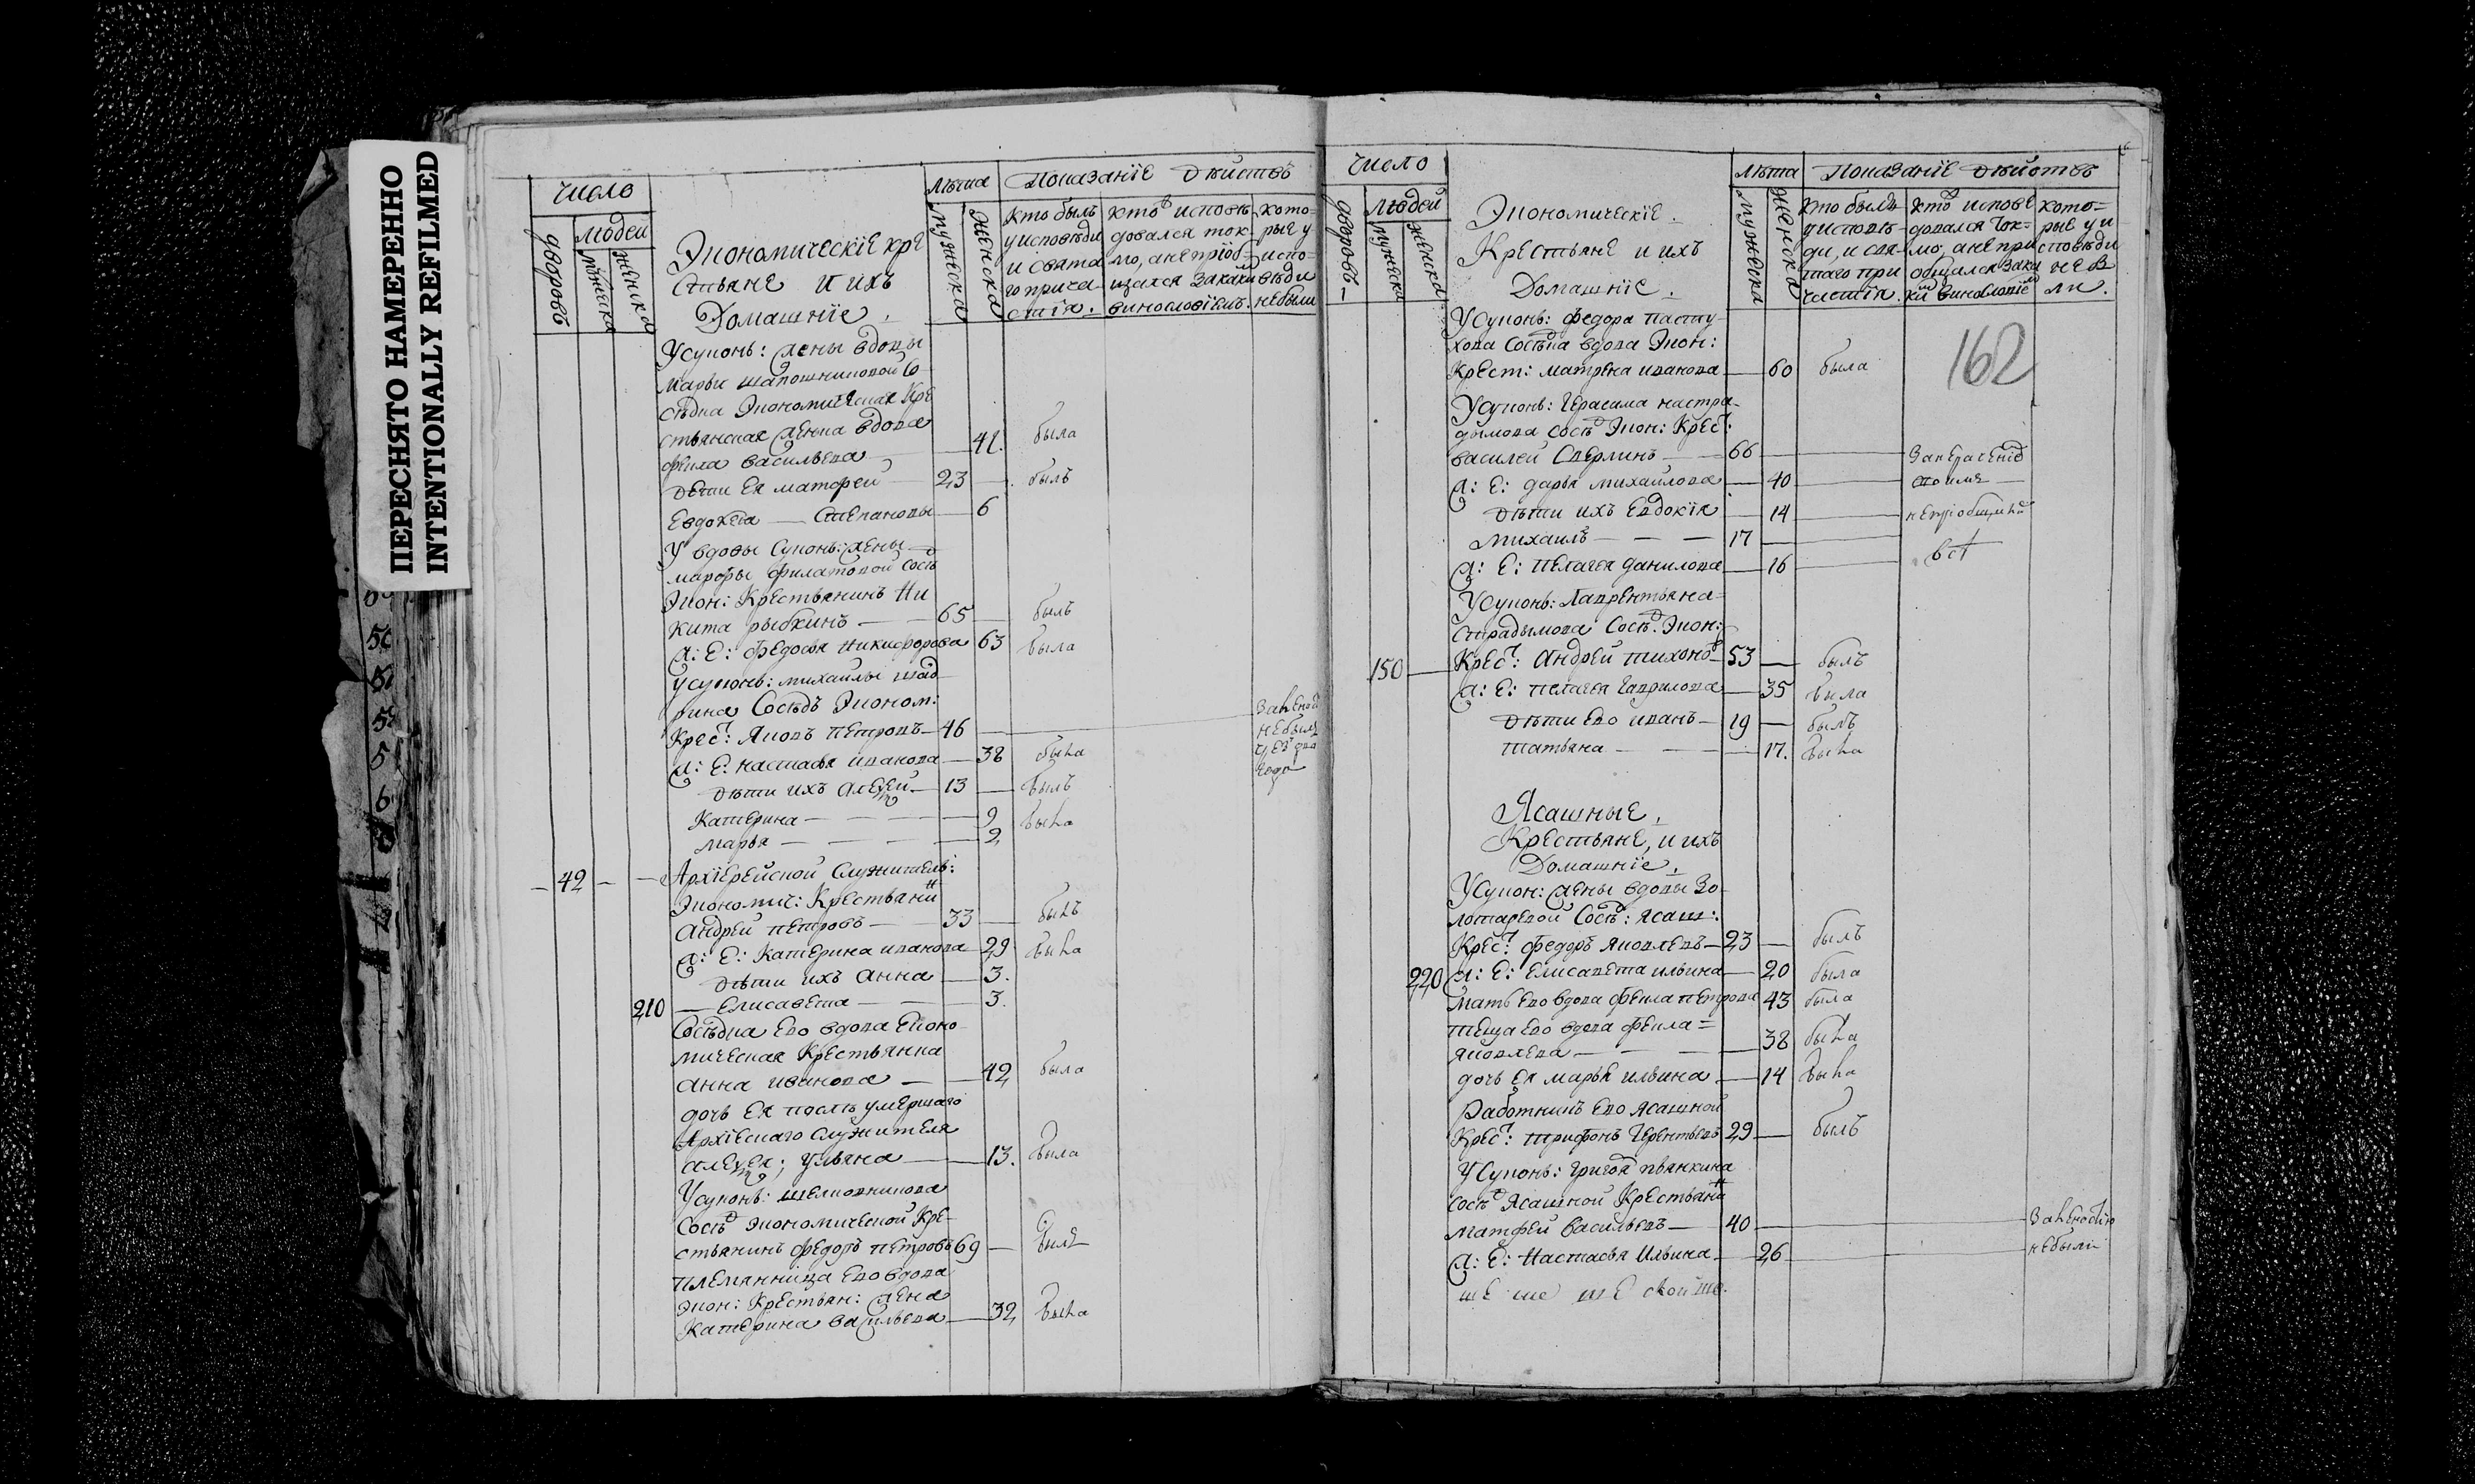 ПЕРЕСНЯТО НАМЕРЕННО
INTENTIONALLY REFILMED
Число
дворовъ
людей
мужеска
женска
Экономическіе кре
стьяне и ихъ
Домашніе.
лѣта
мужеска
женска
Показаніе дѣйствъ
Кто былъ
у исповѣди
и свята
го прича
стія.
кто исповѣ
довался ток-
мо, а не пріоб-
щался за каким
винословіемъ.
кото-
рые у
испо-
вѣди
не были
У супонь: жены вдовы
марьи шапошниковой со
сѣдка Экономическая кре
стьянская женка вдова
фекла васильева — 41. была
дѣти ея матфеи — 23 — былъ
Евдокея — Степановы — 6
У вдовы Супонь: жены
марфы филатовой сосѣд
Экон: Крестьянинъ Ни
кита рыбкинъ — 65 — былъ
ж: Е: федосья никифорова 63 была
У супонь: михаилы шад
рина Сосѣдъ Эконом:
Крест: Яковъ петровъ — 46 —
не былъ
года
ж: Е: настасья иванова — 38 была
дѣти ихъ алеѯеи — 13 — былъ
Катерина — 9 была
марья — 2
42 — Архіерейской служитель:
Экономич: Крестьянин
Андреи петровъ — 33 — былъ
ж: Е: Катерина иванова — 29 была
дѣти ихъ анна — 3.
210 — Елисавета — 3.
Сосѣдка Ево вдова Еконо
мическая Крестьянка
анна иванова — 42 была
дочь ея послѣ умершаго
Архіескаго служителя
алеѯея; ульяна — 13. была
У супонь: шелковникова
Сосѣд экономической кре-
стьянинъ федоръ петровъ 69 — былъ
племянница ево вдова
экон: Крестьян: жена
Катерина васильева — 32 была
Число
дворовъ
людей
мужеска
женска
Экономическіе.
Крестьяне и ихъ
Домашніе.
лѣта
мужеска
женска
Показаніе дѣйствъ
кто былъ
у исповѣ-
ди, и свя-
таго при
частія.
кто испове
довался ток-
мо, а не при
общался зака
ким винословіем
кото=
рые у и
сповѣди
не бы
ли.
162
У супонь: федора пасту
хова Сосѣдка вдова Экон:
Крест: матрена иванова — 60 была
У супонь: Герасима кастра-
дымова сосѣд Экон: Крес:
василеи Сверлинъ — 66 —
ж: Е: дарья михаилова — 40 —
дѣти ихъ Евдокія — 14 —
Михаилъ — 17 —
ж: Е: пелагея данилова — 16 —
У супонь: Лаврентья ка-
страдымова Сосѣд. Экон:
150 — Крес: андреи тихонов — 53 — былъ
ж: Е: пелагея гаврилова — 35 была
дѣти Ево иванъ — 19 — былъ
татьяна — 17. была
Ясашные,
Крестьяне, и ихъ
Домашніе.
У супон: жены вдовы Зо
лотаревой Сосѣд: ясаш:
Крес: федоръ яковлевъ — 23 — былъ
220 ж: Е: Елисавета ильина — 20 была
мать Ево вдова фекла петрова 43 была
теща Ево вдова фекла =
яковлева — 38 была
дочь ея марья ильина — 14 была
Работникъ Ево ясашной
Крес: трифонъ терентьевъ 29 — былъ
У супонь: григоя пьянкина
сосѣд Ясашной Крестьянин
матфеи васильевъ — 40 —
не были
ж: Е: Настасья Ильина — 26